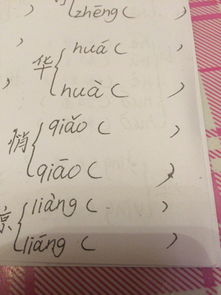 zhēng( )
华 huá( )
huà( )
悄 qiǎo( )
qiāo( )
liàng( )
liáng( )